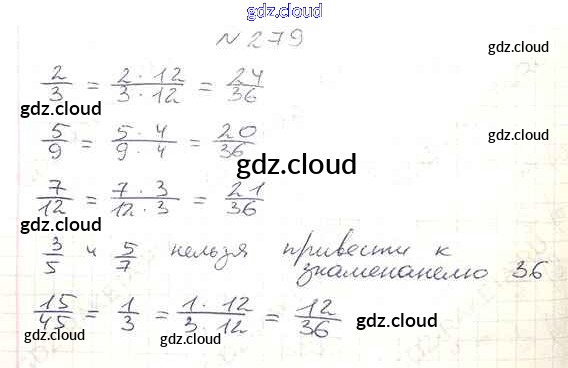 gdz.cloud
N 279
gdz.cloud
2/3 = 2 · 12/3 · 12 = 24/36
gdz.cloud
5/9 = 5 · 4/9 · 4 = 20/36
gdz.cloud
gdz.cloud
7/12 = 7 · 3/12 · 3 = 21/36
gdz.cloud
3/5 и 5/7 нельзя привести к
знаменателю 36
15/45 = 1/3 = 1 · 12/3 · 12 = 12/36
gdz.cloud
gdz.cloud